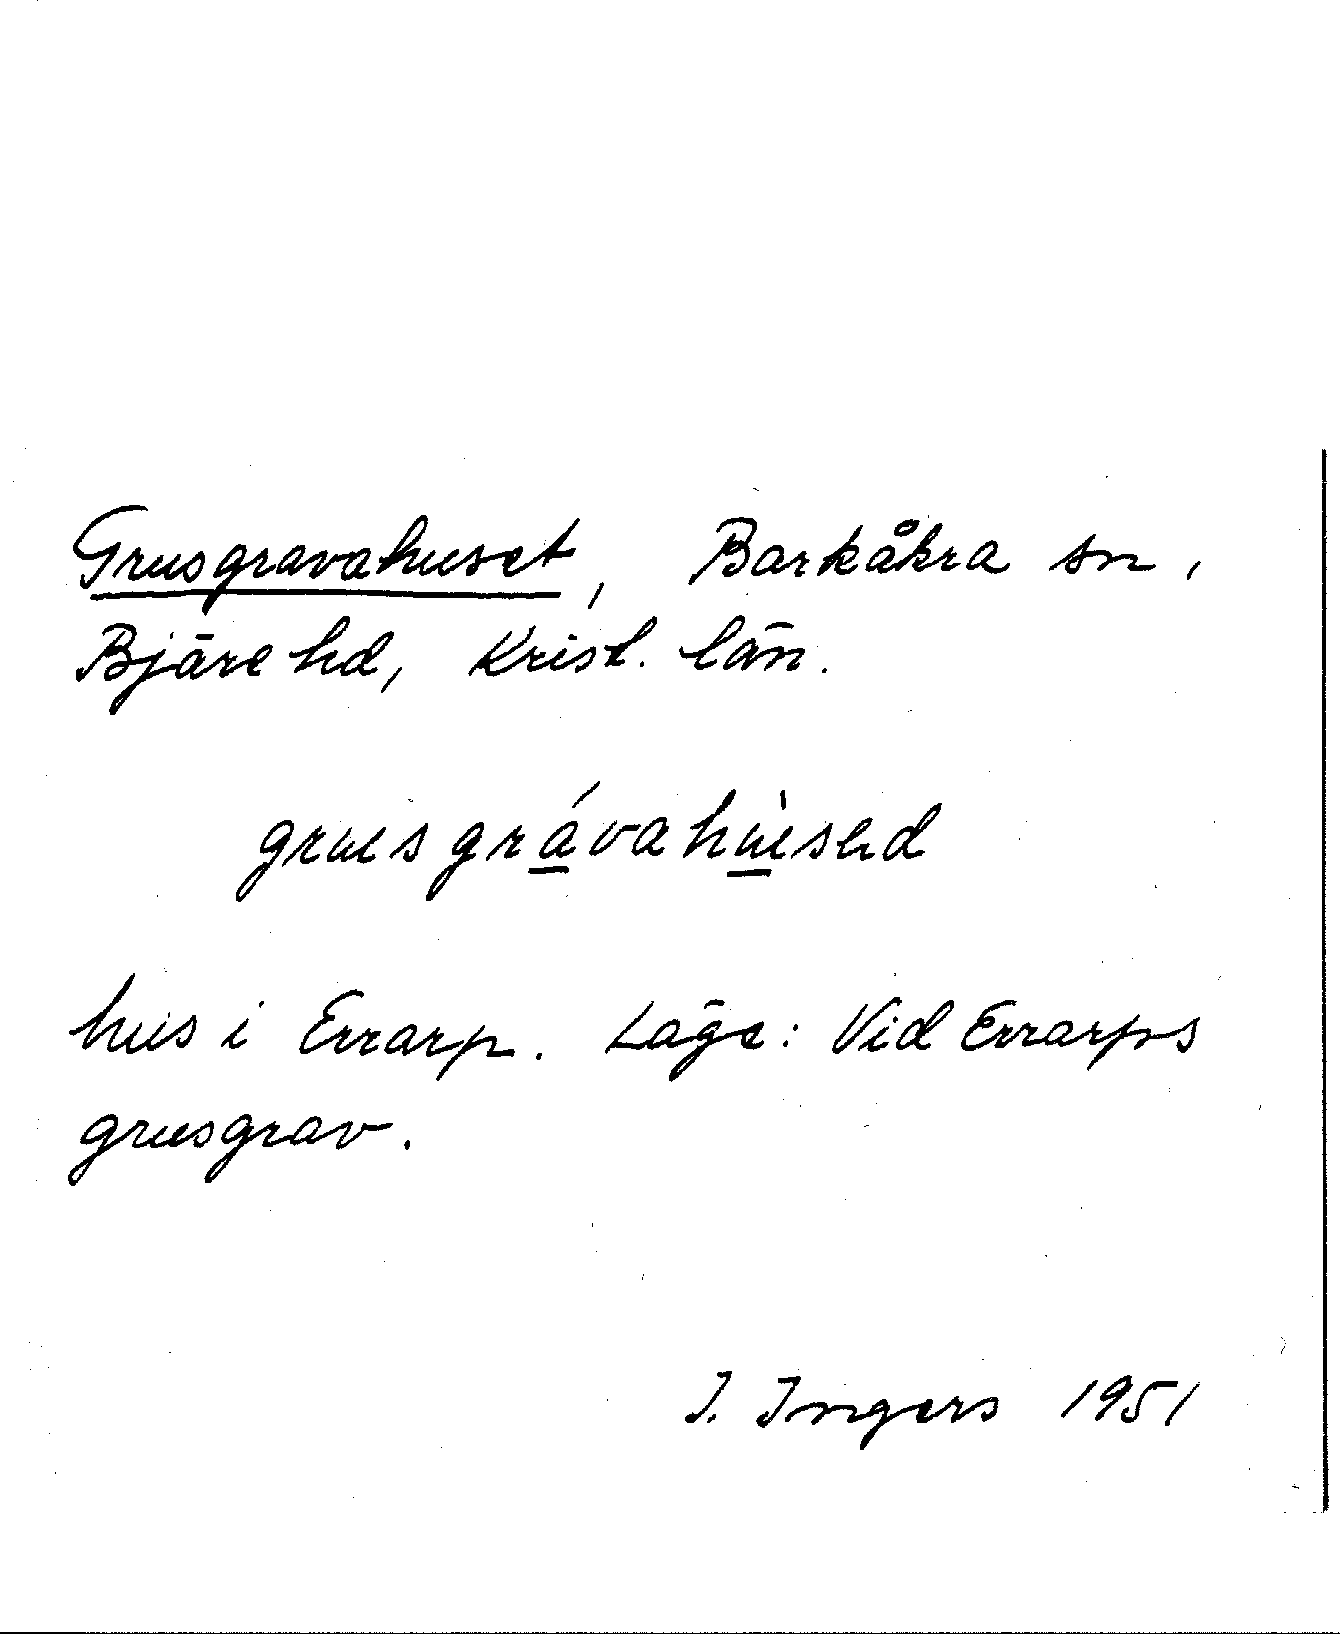 Grusgravahuset, Barkåkra sn,
Bjäre hd, Krist. län.
hus i Errarp. Läge: Vid Errarps
grusgrav.
I. Ingers 1951